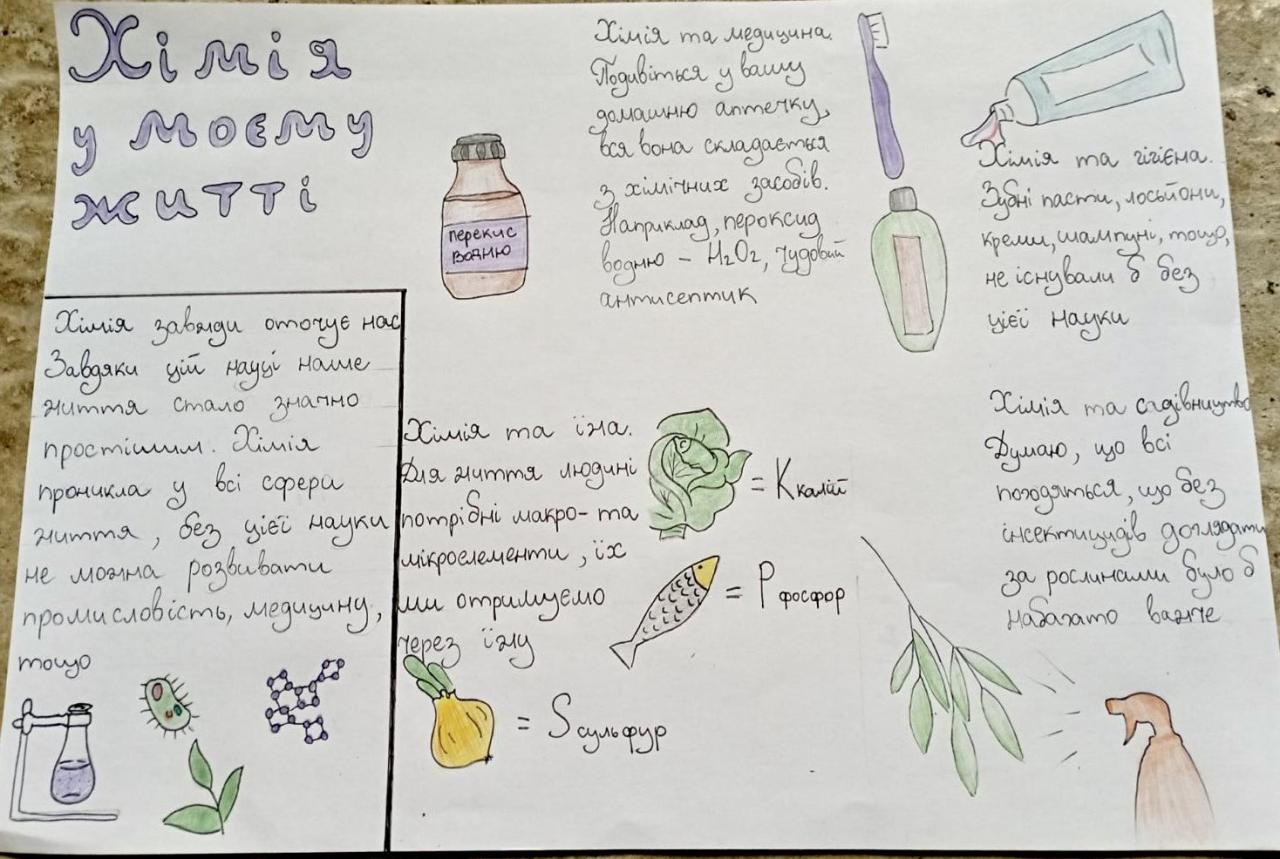 Хімія
у моєму
житті
Хімія завжди оточує нас
Завдяки цій науці наше
життя стало значно
простішим. Хімія
проникла у всі сфери
життя, без цієї науки
не можна розвивати
промисловість, медицину,
тощо
перекис
водню
Хімія та медицина.
Подивіться у вашу
домашню аптечку,
вся вона складається
з хімічних засобів.
Наприклад, пероксид
водню – H2O2, чудовий
антисептик
Хімія та гігієна.
Зубні пасти, лосьйони,
креми, шампуні, тощо,
не існували б без
цієї науки
Хімія та їжа.
Для життя людині
потрібні макро- та
мікроелементи, їх
ми отримуємо
через їжу
= K калій
= P фосфор
= S сульфур
Хімія та садівництво
Думаю, що всі
погодяться, що без
інсектицидів доглядати
за рослинами було б
набагато важче